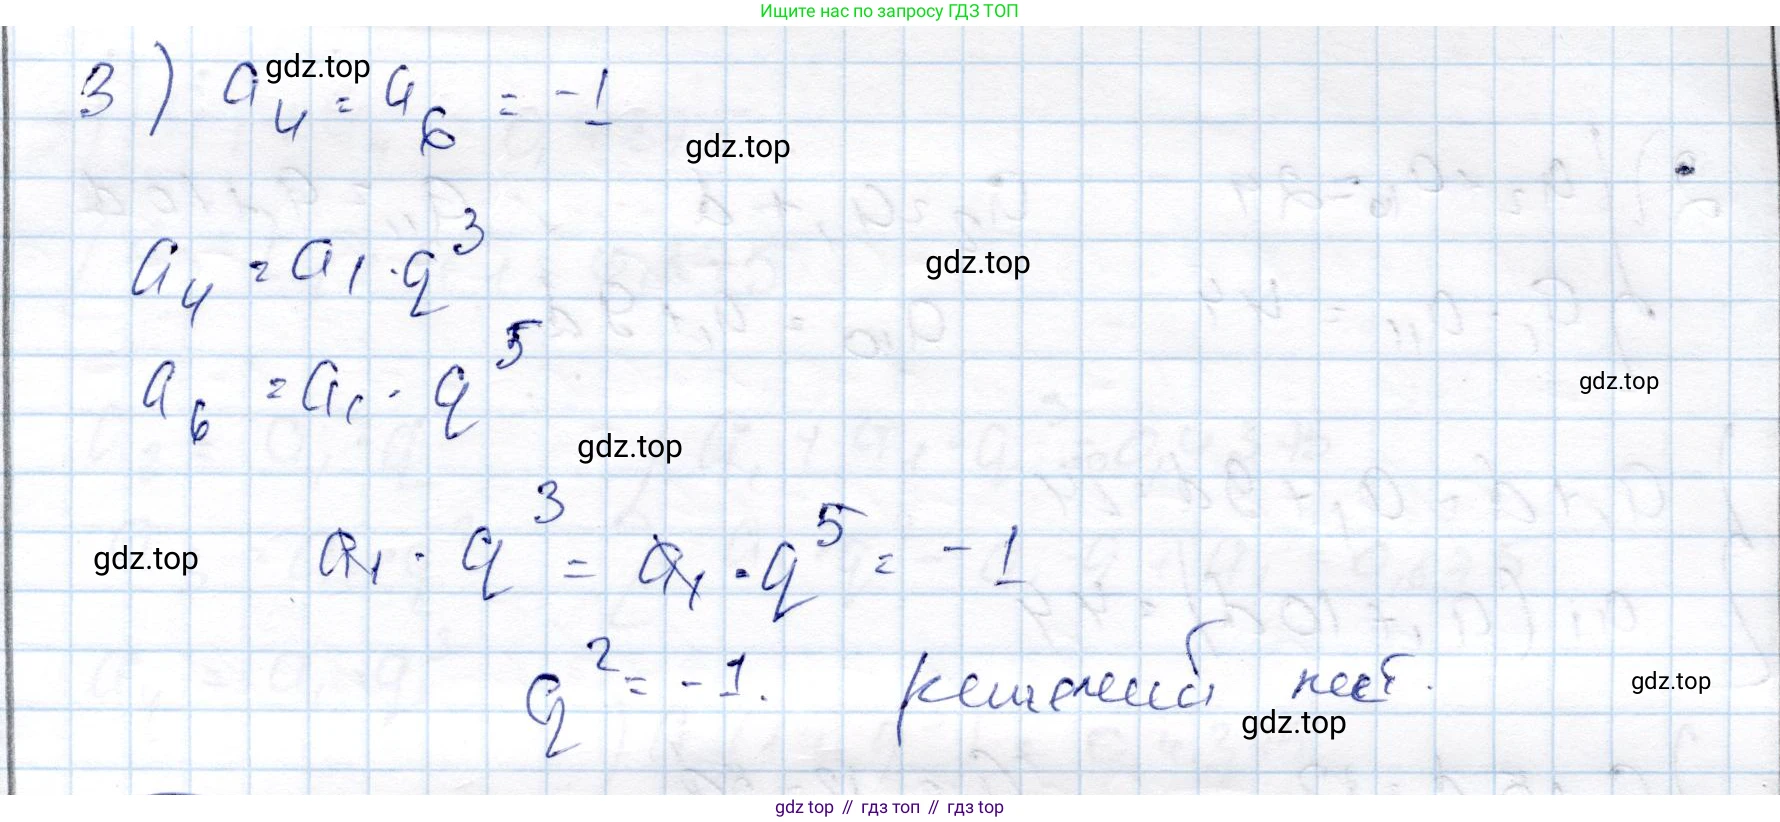 Ищите нас по запросу ГДЗ ТОП
3) a₄ = a₆ = -1
gdz.top
gdz.top
a₄ = a₁ · q³
gdz.top
a₆ = a₁ · q⁵
gdz.top
gdz.top
a₁ · q³ = a₁ · q⁵ = -1
gdz.top
q² = -1. решений нет.
gdz.top
gdz.top
gdz top // гдз топ // гдз top